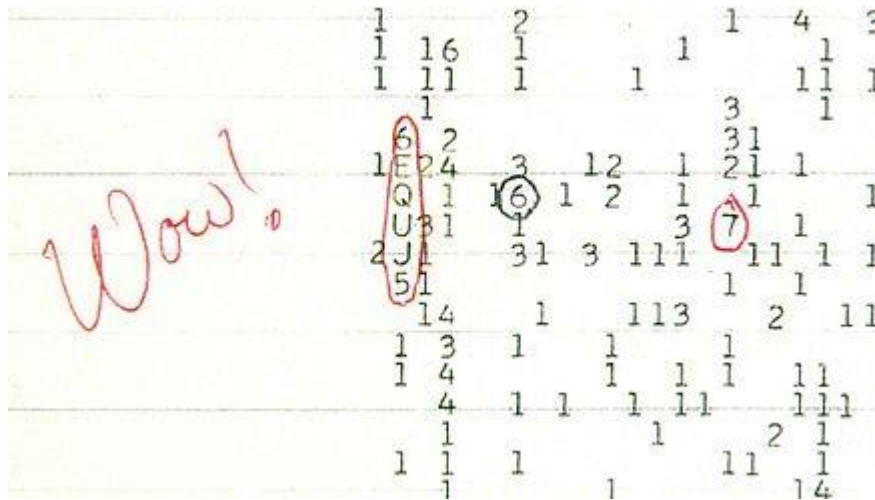 1 2 1 4 3
1 16 1 1 1
1 11 1 1 11 1
1 3 1
6 2 31
1 E24 3 12 1 21 1
Wow!
Q 1 16 1 2 1 1 1
U31 1 3 7 1
2J1 31 3 111 11 1 1
51 1 1
14 1 113 2 11
1 3 1 1 1
1 4 1 1 1 11
4 1 1 1 11 111
1 1 2 1
1 1 1 11 1
1 1 14